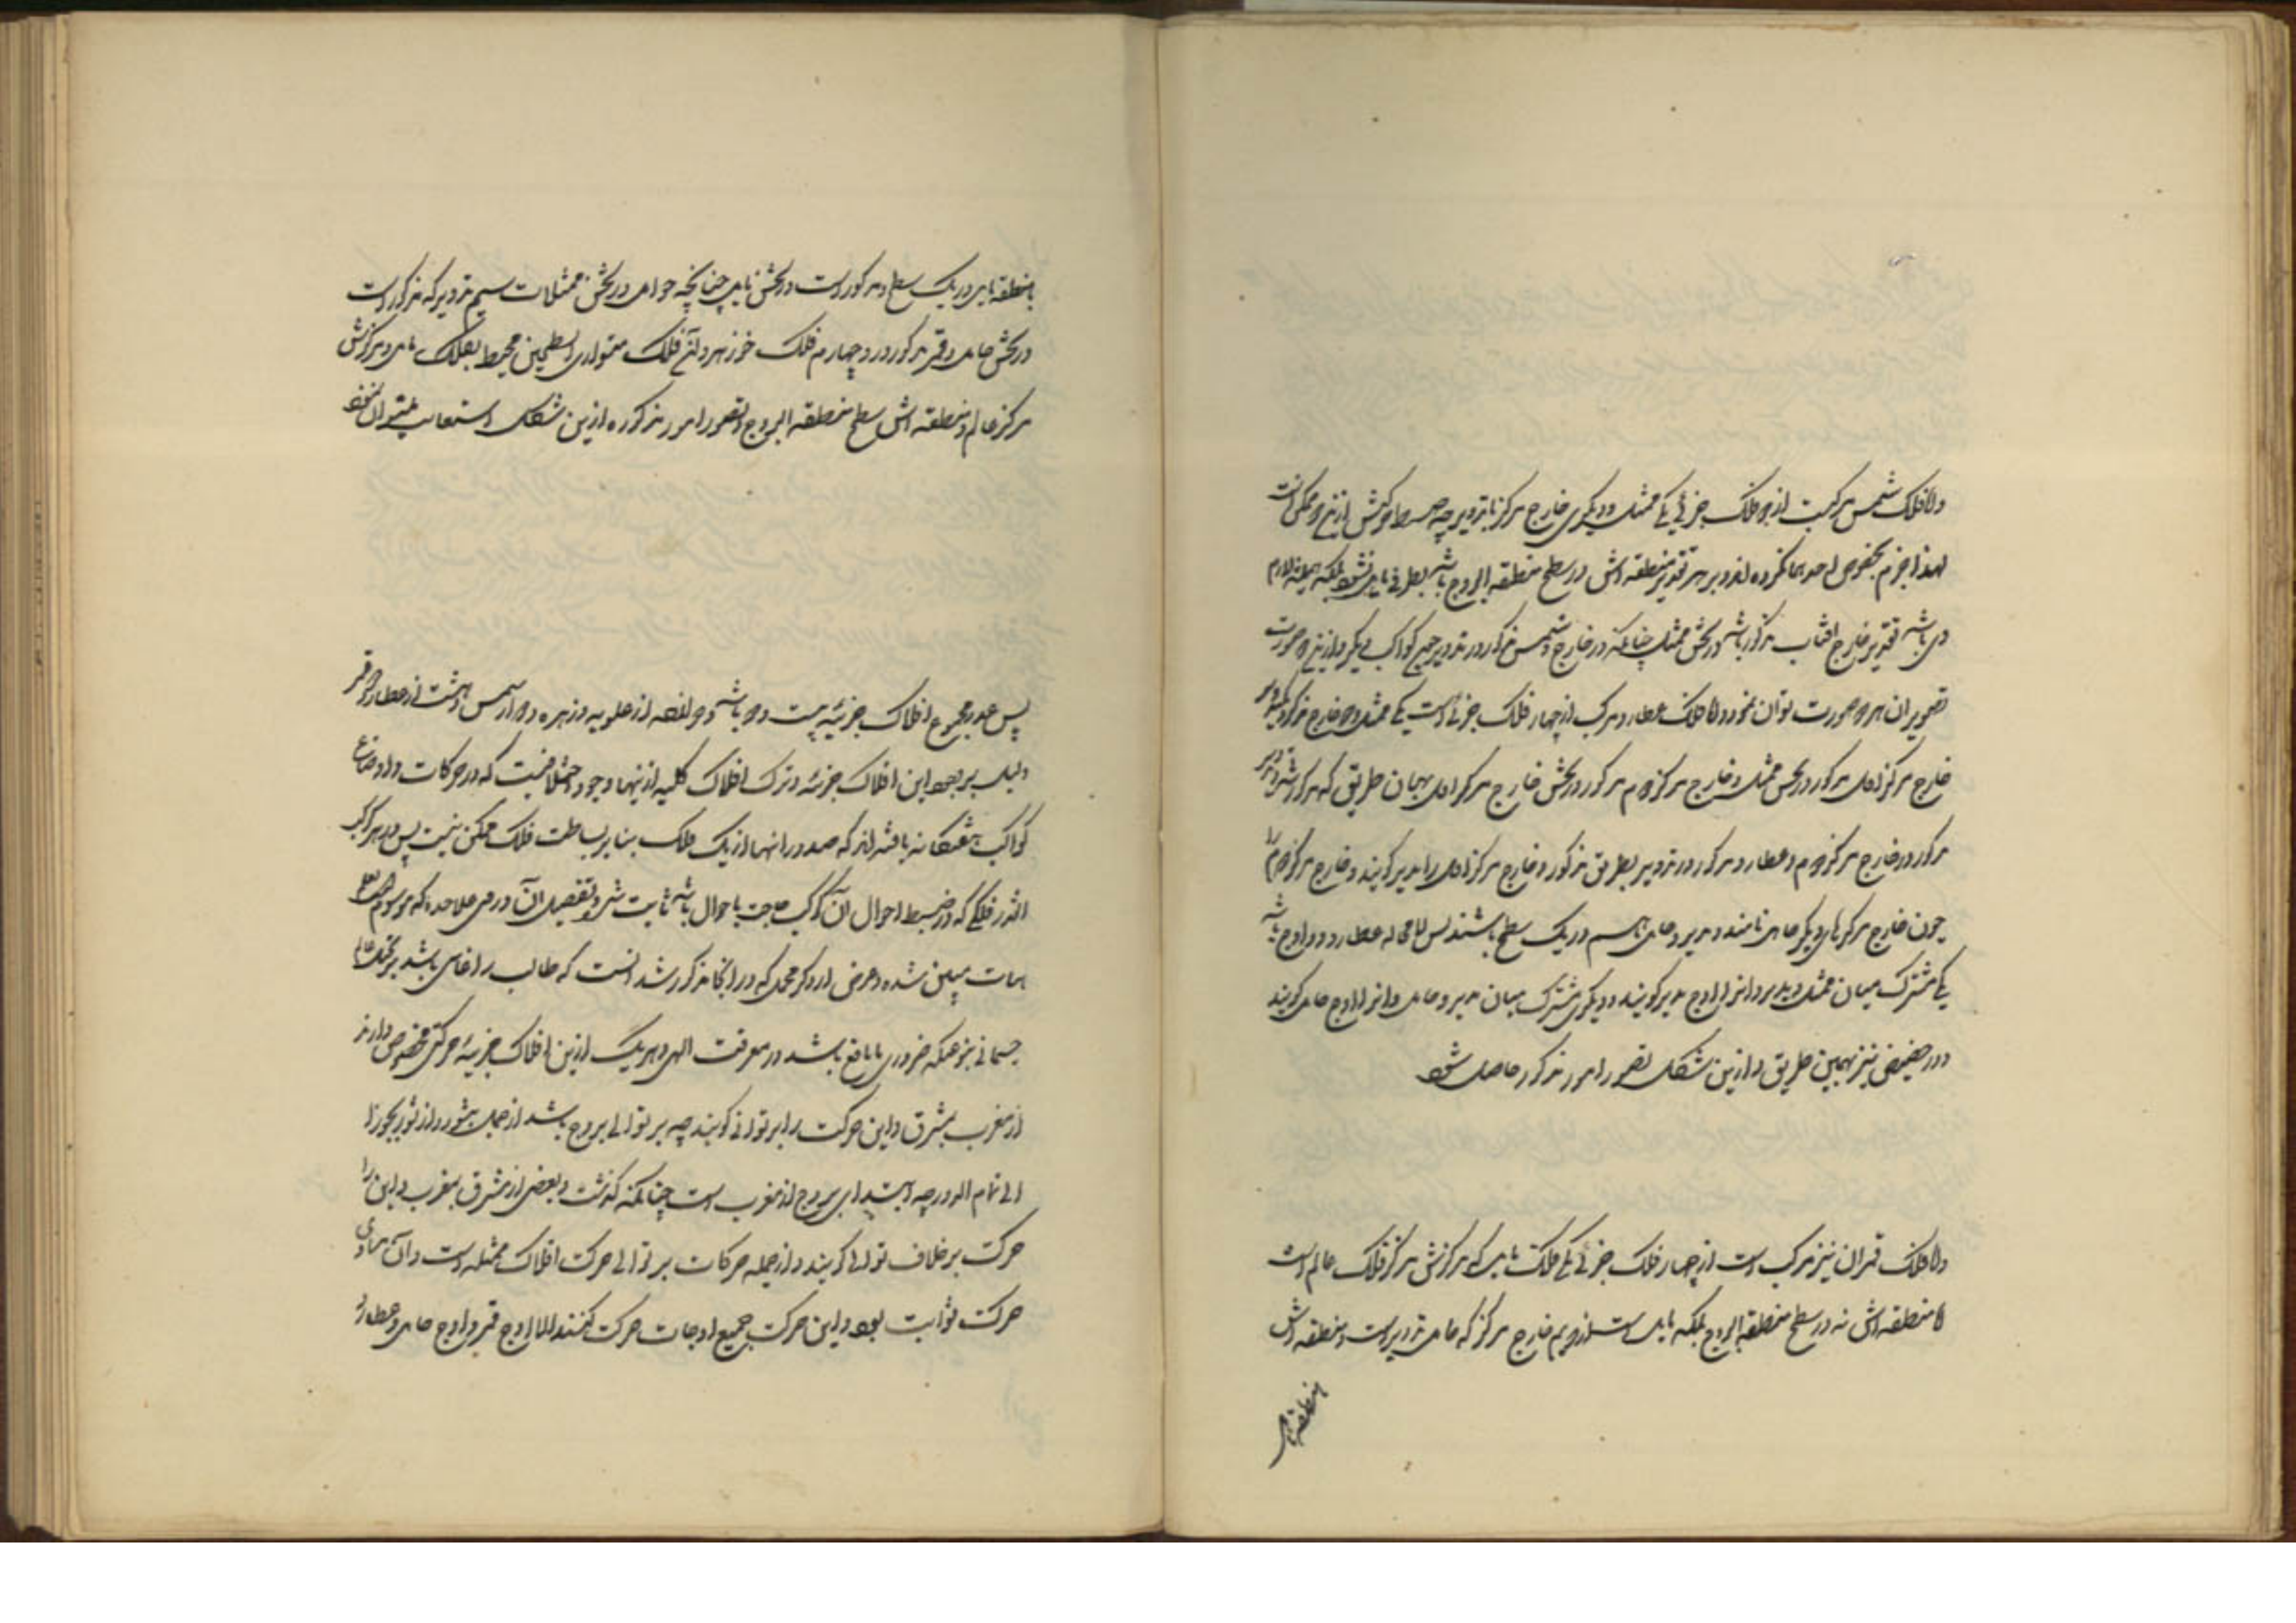 و اما فلک شمس مرکبست از دو فلک جزئی یکی ممثل و دیگری خارج مرکز یا تدویر چه ضبط از این دو ممکن است
لهذا جزم بخصوص احدهما نکرده اند و بر هر تقدیر منطقه اش در سطح منطقة البروج باشد بطرفی مایل نشود بلکه همیشه ملازم
وی باشد تقدیر خارج افتاب مرکوز باشد در ثخن ممثل چنانکه در خارج و شمس مرکوز در تدویر جمیع کواکب دیگر و ازین دو صورت
تصویر ان هر دو صورت توان نمود و اما فلک عطارد مرکب از چهار فلک جزئی است یکی ممثل و دو خارج مرکز
خارج مرکز اول مرکوز در ثخن ممثل و خارج مرکز دوم مرکوز در ثخن خارج مرکز اول بهمان طریق که مرکوز شد و تدویر
مرکوز در خارج مرکز دوم و عطارد مرکوز در تدویر بطریق مذکور و خارج مرکز اول را مدیر گویند و خارج مرکز دوم را
چون خارج مرکزهای دیگر حامل نامند و مدیر و حامل باهم در یک سطح باشند پس لامحاله عطارد دو اوج باشد
یکی مشترک میان ممثل و مدیر و انرا اوج مدیر گویند و دیگری مشترک میان مدیر و حامل و انرا اوج حامل گویند
و در حضیض نیز بهمین طریق و ازین شکل تصور امور مذکور حاصل شود
و اما فلک قمر ان نیز مرکب است از چهار فلک جزئی یکی فلک مایل که مرکزش مرکز فلک عالم است
اما منطقه اش نه در سطح منطقة البروج بلکه مایل است از و دویم خارج مرکز که حامل تدویر است و منطقه اش
با منطقه مایل
با منطقه مایل در یک سطح و مرکوز است در ثخن مایل چنانچه حوامل در ثخن ممثلات سیم تدویر که مرکوز است
در ثخن حامل و قمر مرکوز در و چهارم فلک جوزهر و آن فلک متوازی السطحین محیط بفلک مایل و مرکزش
مرکز عالم و منطقه اش سطح منطقة البروج و تصور امور مذکوره ازین شکل استعانت میتوان نمود
پس عدد مجموع افلاک جزئیه بیست و دو باشد دوازده از علویه و زهره و دو از شمس و هشت از عطارد و قمر
و دلیل بر بودن این افلاک جزئیه و ترک افلاک کلیه ازینها وجود اختلافیست که در حرکات و اوضاع
کواکب هفتگانه یافته اند که صدور انها از یک فلک بنا بر بساطت فلک ممکن نیست پس در هر کوکب
انقدر فلکی که در ضبط احوال آن کوکب حاجت باحوال باشد ثابت شد و تفصیل ان در محل علاحده که موسوم
است مبین شده و غرض از ذکر مجمل که در اینجا مذکور شد انست که طالب را فی الجمله باشد بر حرکات
جسمانی بنوعیکه ضروری یا نافع باشد در معرفت الهی و هر یک ازین افلاک جزئیه حرکتی مخصوص دارند
از مغرب بمشرق و این حرکت را بر توالی گویند چه بر توالی بروج باشد از حمل بثور و از ثور بجوزا
الی تمام الدور چه ابتدای بروج از مغرب است چنانکه گذشت و بعضی از مشرق بمغرب و این را
حرکت بر خلاف توالی گویند و از جمله حرکات بر توالی حرکت افلاک ممثله است و آن مساوی
حرکت ثوابت بود و این حرکت جمیع اوجات حرکت کنند الا اوج قمر و اوج حامل عطارد